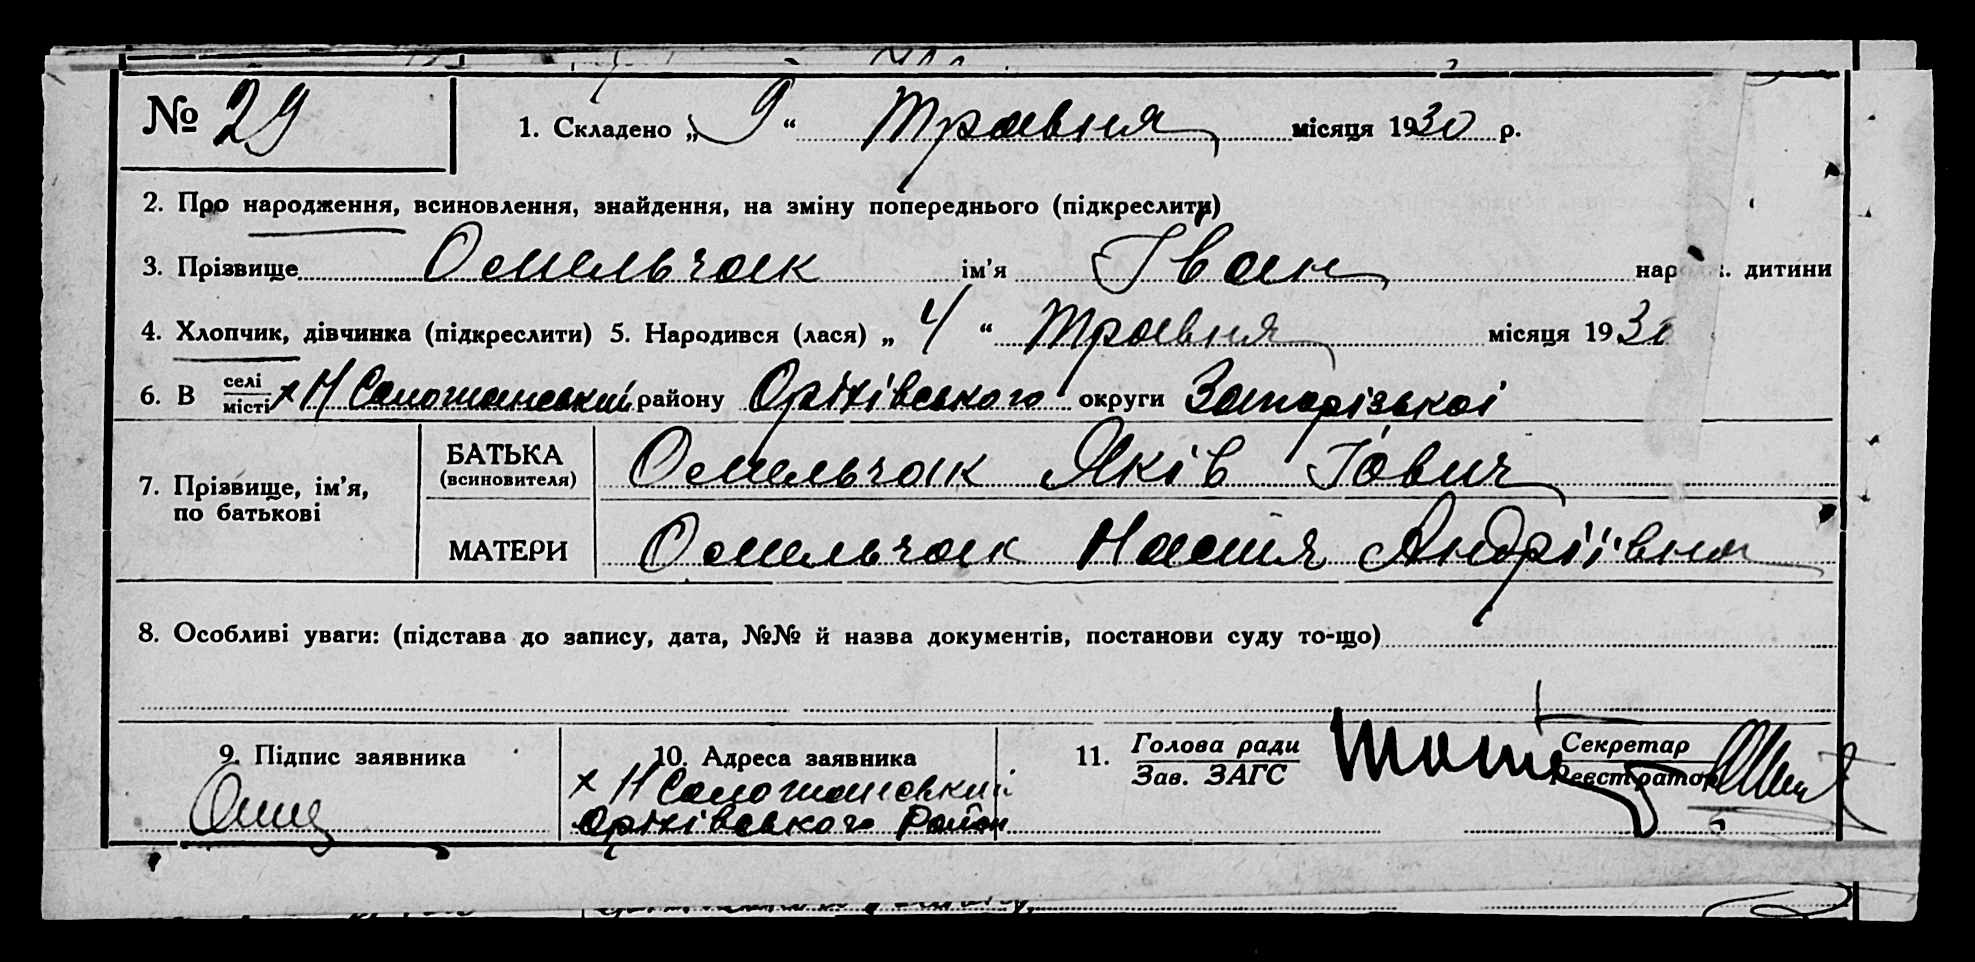 № 29
1. Складено „ 9 “ Травня місяця 1930 р.
2. Про народження, всиновлення, знайдення, на зміну попереднього (підкреслити)
3. Прізвище Омельчак ім'я Іван нар дитини
4. Хлопчик, дівчинка (підкреслити) 5. Народився (лася) „ 4 “ Травня місяця 1930
6. В селі
місті х Н Солошанський району Оріхівського округи Запорізької
7. Прізвище, ім'я,
по батькові
БАТЬКА
(всиновителя)
Омельчак Яків Іович
МАТЕРИ
Омельчак Настя Андріївна
8. Особливі уваги: (підстава до запису, дата, №№ й назва документів, постанови суду то-що)
9. Підпис заявника
10. Адреса заявника
х Н Солошанський
Оріхівського Район
11. Голова ради
Зав. ЗАГС
Секретар
Реєстратор